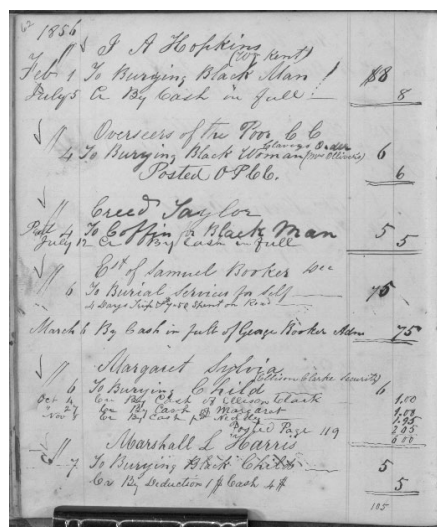 62 1856
" J A Hopkins (Wm Kent)
Feb 1 To Burying Black Man! $8
July 5 Cr By Cash in full 8
" Overseers of the Poor C C
4 To Burying Black Woman Order 6
Posted O P C C. 6
" Creed Taylor
4 To Coffin Black Man 5
July 12 Cr By Cash in full 5
" Est of Samuel Booker Dec
6 To Burial Services for Self 75
4 Days Trip on Road
March 6 By Cash in full of George Booker Adm 75
" Margaret Sylvia (Ellison Clarke Security)
6 To Burying Child 6
Oct 4 Cr By Cash of Ellison Clark 1.00
" 27 Cr By Cash of Margaret 1.00
Nov Cr By Cash 1.95
Posted Page 119 2.05
6.00
" Marshall L Harris
7 To Burying Black Child 5
Cr By Deduction 1$ Cash 4$ 5
105